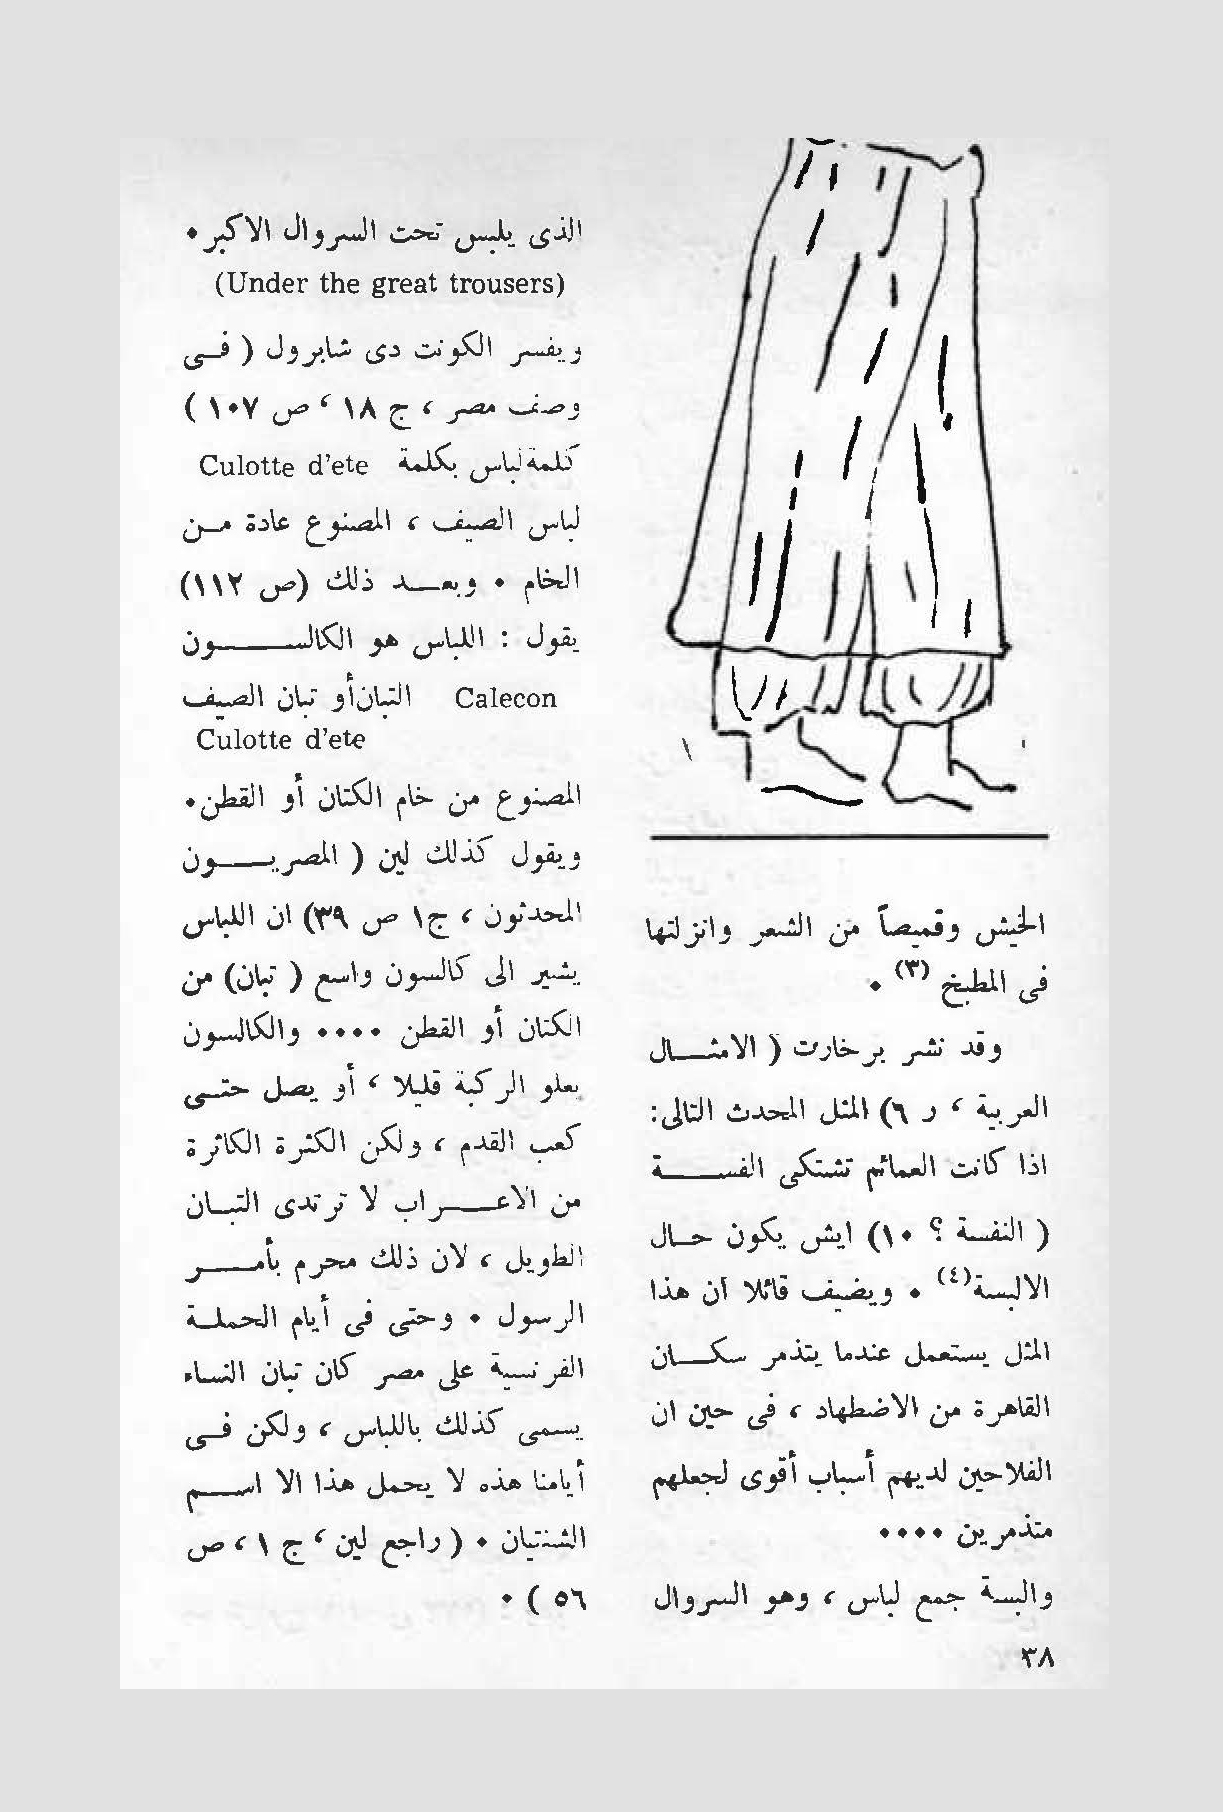 الخيش وقميصاً من الشعر وانزلتها
فى المطبخ (٣) ٠
وقد نشر برخارت ( الامثـــال
العربية ، ر ٦) المثل المحدث التالى:
اذا كانت العمائم تشتكى الفســـة
( النفسة ؟ ١٠) ايش يكون حـال
الالبسة(٤) ٠ ويضيف قائلا ان هذا
المثل يستعمل عندما يتذمر سكـــان
القاهرة من الاضطهاد ، فى حين ان
الفلاحين لديهم أسباب أقوى لجعلهم
متذمرين ٠٠٠٠
والبسة جمع لباس ، وهو السروال
الذى يلبس تحت السروال الاكبر ٠
(Under the great trousers)
ويفسر الكونت دى شابرول ( فـى
وصف مصر ، ج ١٨ ، ص ١٠٧ )
كلمة لباس بكلمة Culotte d'ete
لباس الصيف ، المصنوع عادة مـن
الخام ٠ وبعـــد ذلك (ص ١١٢)
يقول : اللباس هو الكالســـــون
Calecon التبان أو تبان الصيف
Culotte d'ete
المصنوع من خام الكتان أو القطن ٠
ويقول كذلك لين ( المصريـــون
المحدثون ، ج١ ص ٣٩) ان اللباس
يشير الى كالسون واسع ( تبان) من
الكتان أو القطن ٠٠٠٠ والكالسون
يعلو الركبة قليلا ، أو يصل حتـى
كعب القدم ، ولكن الكثرة الكاثرة
من الاعـــراب لا ترتدى التبـان
الطويل ، لان ذلك محرم بأمـــر
الرسول ٠ وحتى فى أيام الحملـة
الفرنسية على مصر كان تبان النساء
يسمى كذلك باللباس ، ولكن فـى
أيامنا هذه لا يحمل هذا الا اســـم
الشنتيان ٠ ( راجع لين ، ج ١ ، ص
٥٦ ) ٠
٣٨